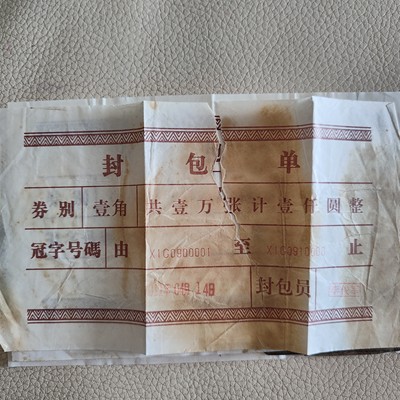 封包单
券别 壹角 共壹万张计壹仟圆整
冠字号码 由 X1C0900001 至 X1C0910000 止
封包员